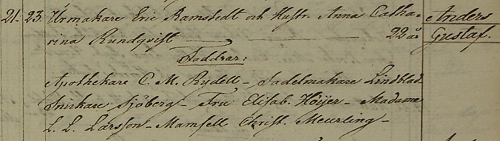 21. 23. Urmakare Eric Ramstedt och Hustr. Anna Catha- Anders
rina Rundqvist 22 år Gustaf.
Faddrar:
Apothekare C. M. Rydell - Sadelmakare Lindblad
Snickare Sjöberg - Fru Elisab. Höijer - Madame
L. L. Larsson - Mamsell Christ. Meurling -